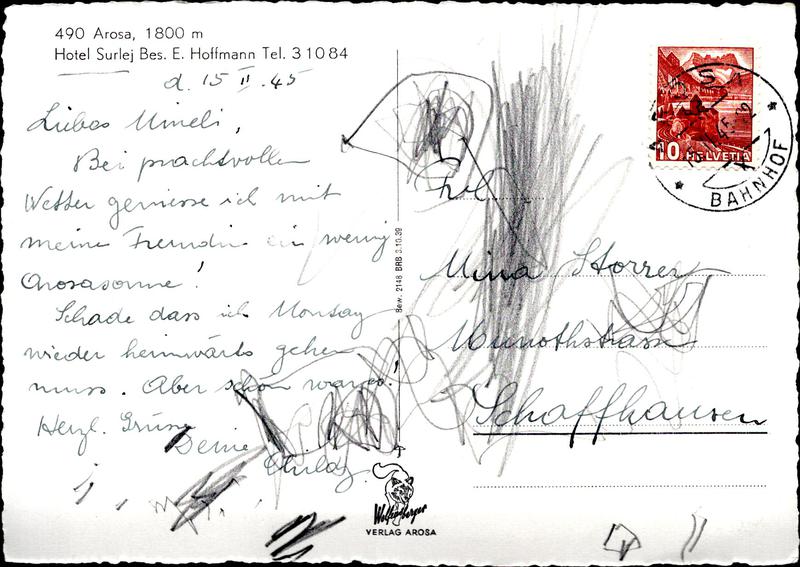 490 Arosa, 1800 m
Hotel Surlej Bes. E. Hoffmann Tel. 3 10 84
d. 15 II. 45
Liebes Mineli,
Bei prachtvollem
Wetter geniesse ich mit
meiner Freundin ein wenig
Arosasonne!
Schade dass ich Montag
wieder heimwärts gehen
muss. Aber schön war es!
Herzl. Grüsse
Deine
Bew. 2148 BRB 3.10.39
Frl.
Mina Storrer
Munothstrasse
Schaffhausen
10 HELVETIA
BAHNHOF
VERLAG AROSA